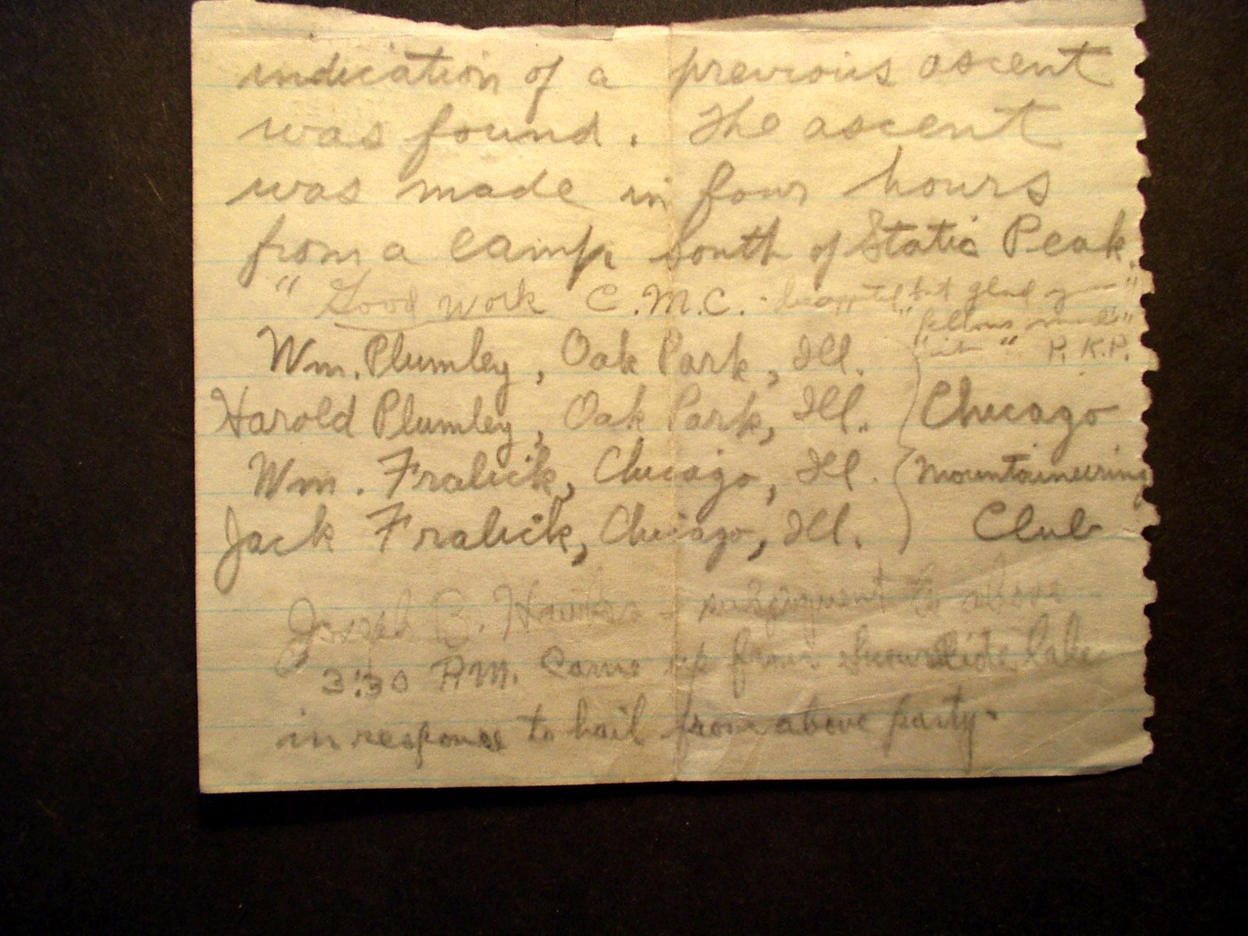 indication of a previous ascent
was found. The ascent
was made in four hours
from a camp south of Static Peak.
"Good work C.M.C. - but glad you"
"fellows made"
"it" P. K. P.
Wm. Plumley, Oak Park, Ill.
Harold Plumley, Oak Park, Ill. Chicago
Wm. Fralick, Chicago, Ill. Mountaineering
Jack Fralick, Chicago, Ill. Club
Joseph B. - subsequent to above -
3:30 P.M. Came up from Snowslide Lake
in response to hail from above party.